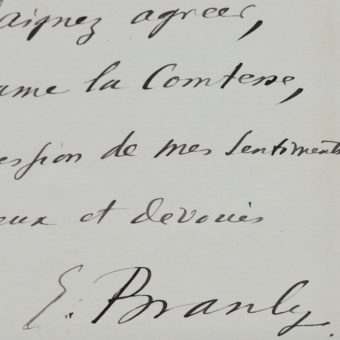 aignez agréer,
ame la Comtesse,
ession de mes sentiments
eux et dévoués
E. Branly.